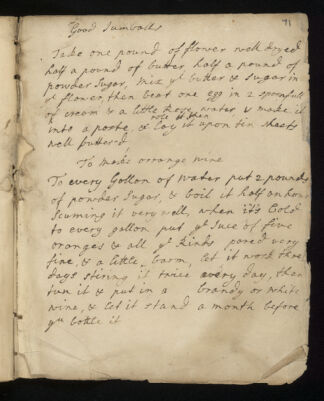 Good Jumbals
71
Take one pound of flower well dryed
half a pound of butter half a pound of
powder Sugar, mix yᵉ butter & Sugar in
yᵉ flower, then beat one egg in 2 spoonfulls
of cream & a little Rose water, & make it
into a paste, & role it then lay it upon tin sheets
well butterd
To make orrange wine
To every Gallon of Water put 2 pounds
of powder Sugar, & boil it half an hour
Scuming it very well, when it's Cold
to every gallon put yᵉ Juce of five
oranges & all yᵉ Rinds pared very
fine & a little barm, let it work three
days stiring it twice every day, then
tun it & put in a brandy or white
wine, & let it stand a month before
you bottle it